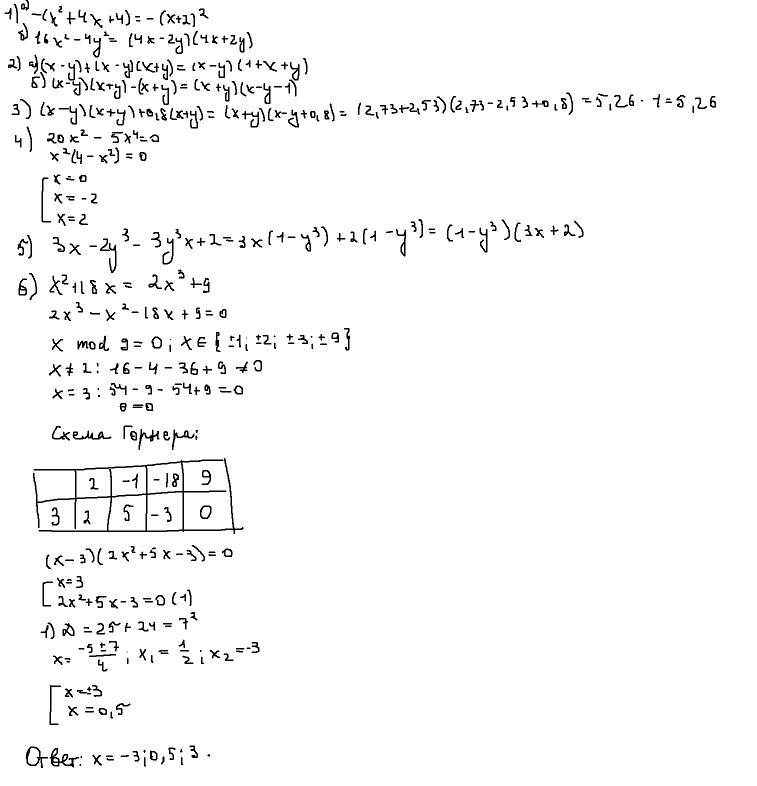 1) а) -(x²+4x+4)=-(x+2)²
б) 16x²-4y²=(4x-2y)(4x+2y)
2) а) (x-y)+(x-y)(x+y)=(x-y)(1+x+y)
б) (x-y)(x+y)-(x+y)=(x+y)(x-y-1)
3) (x-y)(x+y)+0,8(x+y)=(x+y)(x-y+0,8)=(2,73+2,53)(2,73-2,53+0,8)=5,26·1=5,26
4) 20x²-5x⁴=0
x²(4-x²)=0
[x=0
x=-2
x=2
5) 3x-2y³-3y³x+2=3x(1-y³)+2(1-y³)=(1-y³)(3x+2)
6) x²+18x=2x³+9
2x³-x²-18x+9=0
x mod 9=0; x∈{±1; ±2; ±3; ±9}
x≠2: 16-4-36+9≠0
x=3: 54-9-54+9=0
0=0
Схема Горнера:
2 -1 -18 9
3 2 5 -3 0
(x-3)(2x²+5x-3)=0
[x=3
2x²+5x-3=0 (1)
1) D=25+24=7²
x=(-5±7)/4; x₁=1/2; x₂=-3
[x=±3
x=0,5
Ответ: x=-3;0,5;3.